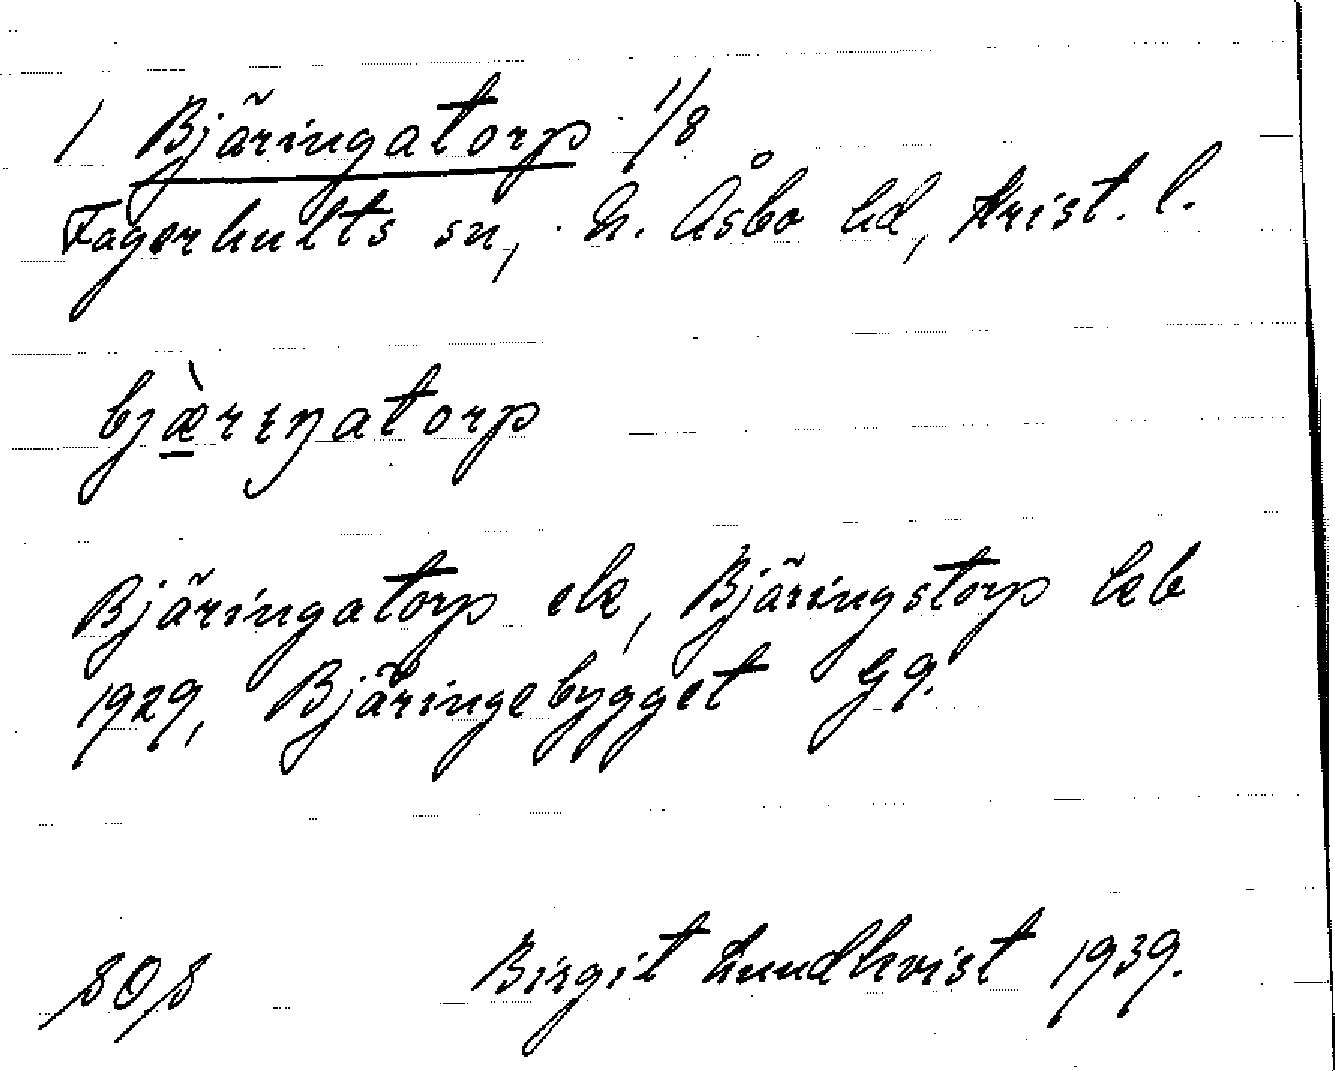 1 Bjäringatorp 1/8
Fagerhults sn, N. Åsbo hd, Krist. l.
bjæ̀rıŋatorp
Bjäringatorp ek, Bjäringstorp lkb
1929, Bjäringebygget Gg.
SOS Birgit Lundkvist 1939.